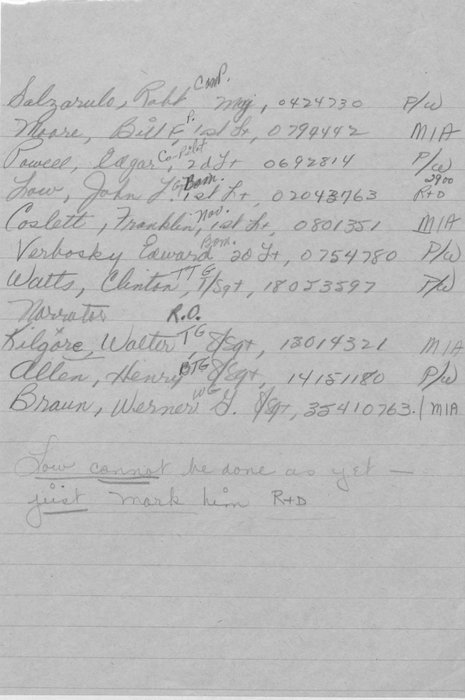 Salzarulo, Robt Com P. Maj, 0424730 P/W
Moore, Bill F, P. 1st Lt, 0794442 MIA
Powell, Edgar Co-Pilot 2d Lt 0692814 P/W
Low, John L. G Bom. 1st Lt, 02043763 2900 R+D
Coslett, Franklin, Nav. 1st Lt, 0801351 MIA
Verbosky Edward Bom. 2d Lt, 0754780 P/W
Watts, Clinton TTG, T/Sgt, 18053597 P/W
Narrator R.O.
Kilgore, Walter TG, S/Sgt, 13014321 MIA
Allen, Henry BTG S/Sgt, 14151180 P/W
Braun, Werner G. WG S/Sgt, 35410763. MIA
Low cannot be done as yet —
just mark him R+D